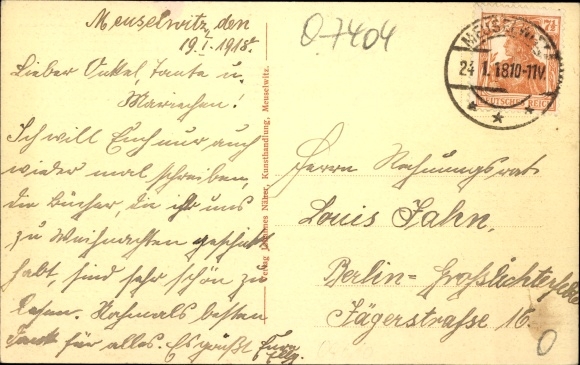 Meuselwitz, den
19.I.1918.
Lieber Onkel, Tante u.
Mariechen!
Ich will Euch nur auch
wieder mal schreiben,
die Bücher, die ihr uns
zu Weihnachten geschickt
habt, sind sehr schön zu
lesen. Nochmals besten
Dank für alles. Es grüßt Eure
Elly.
Verlag Johannes Näher, Kunsthandlung, Meuselwitz.
O.7404
MEUSELWITZ
24.1.18.10-11V.
7½
DEUTSCHES REICH
Herrn Rechnungsrat
Louis Jahn,
Berlin=Großlichterfelde
Jägerstrasse 16.
0